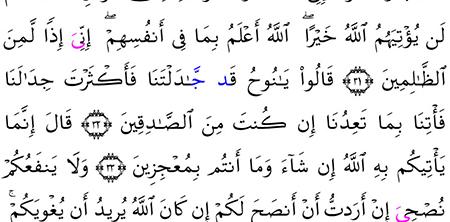 لَن يُؤْتِيَهُمُ ٱللَّهُ خَيْرًا ۖ ٱللَّهُ أَعْلَمُ بِمَا فِى أَنفُسِهِمْ ۖ إِنِّىَ إِذًا لَّمِنَ
ٱلظَّـٰلِمِينَ ﴿٣١﴾ قَالُوا۟ يَـٰنُوحُ قَد جَّـٰدَلْتَنَا فَأَكْثَرْتَ جِدَٰلَنَا
فَأْتِنَا بِمَا تَعِدُنَا إِن كُنتَ مِنَ ٱلصَّـٰدِقِينَ ﴿٣٢﴾ قَالَ إِنَّمَا
يَأْتِيكُم بِهِ ٱللَّهُ إِن شَآءَ وَمَا أَنتُم بِمُعْجِزِينَ ﴿٣٣﴾ وَلَا يَنفَعُكُمْ
نُصْحِىَ إِنْ أَرَدتُّ أَنْ أَنصَحَ لَكُمْ إِن كَانَ ٱللَّهُ يُرِيدُ أَن يُغْوِيَكُمْ ۚ